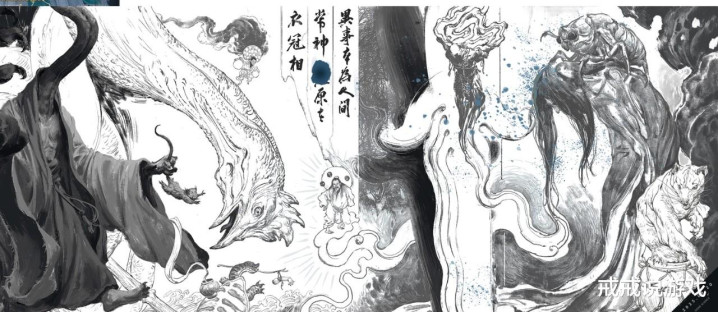 異事本為人间
常神原是
衣冠相
戒戒说游戏